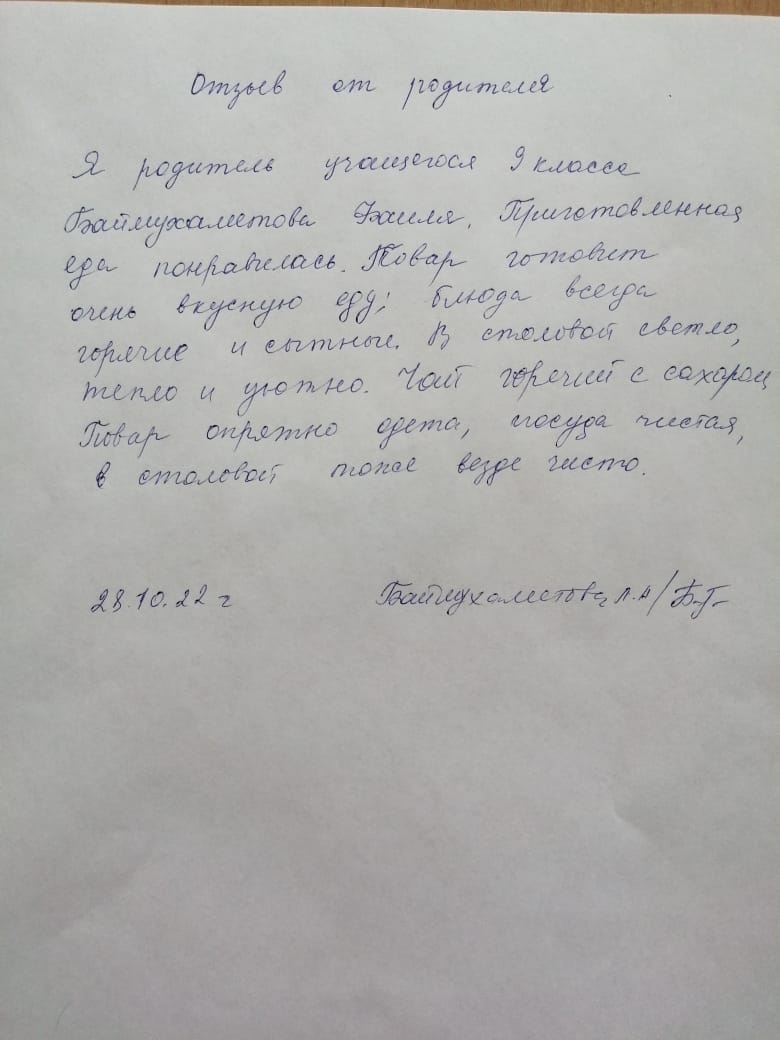 Отзыв от родителя
Я родитель учащегося 9 класса
Баймухаметова Фаиля. Приготовленная
еда понравилась. Повар готовит
очень вкусную еду; блюда всегда
горячие и сытные. В столовой светло,
тепло и уютно. Чай горячий с сахаром
Повар опрятно одета, посуда чистая,
в столовой тоже везде чисто.
28.10.22 г Баймухаметова Л.А/